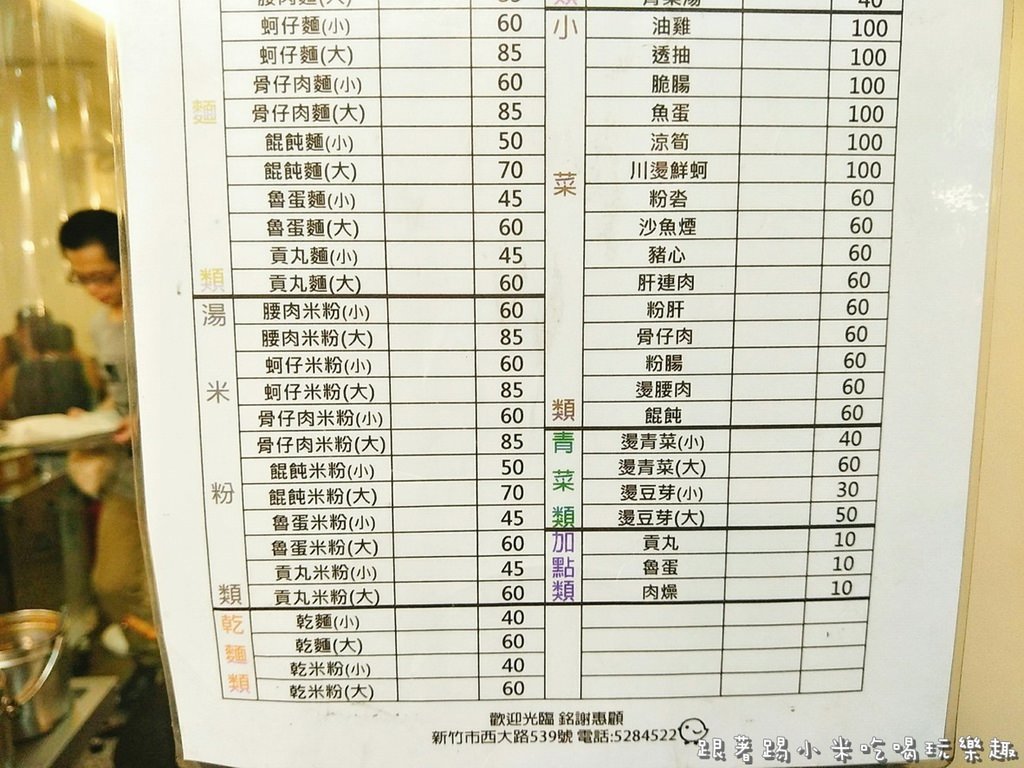 麵類
腰肉麵(大) 85
蚵仔麵(小) 60
蚵仔麵(大) 85
骨仔肉麵(小) 60
骨仔肉麵(大) 85
餛飩麵(小) 50
餛飩麵(大) 70
魯蛋麵(小) 45
魯蛋麵(大) 60
貢丸麵(小) 45
貢丸麵(大) 60
湯米粉類
腰肉米粉(小) 60
腰肉米粉(大) 85
蚵仔米粉(小) 60
蚵仔米粉(大) 85
骨仔肉米粉(小) 60
骨仔肉米粉(大) 85
餛飩米粉(小) 50
餛飩米粉(大) 70
魯蛋米粉(小) 45
魯蛋米粉(大) 60
貢丸米粉(小) 45
貢丸米粉(大) 60
乾麵類
乾麵(小) 40
乾麵(大) 60
乾米粉(小) 40
乾米粉(大) 60
類
青菜湯 40
小菜類
油雞 100
透抽 100
脆腸 100
魚蛋 100
涼筍 100
川燙鮮蚵 100
粉沯 60
沙魚煙 60
豬心 60
肝連肉 60
粉肝 60
骨仔肉 60
粉腸 60
燙腰肉 60
餛飩 60
青菜類
燙青菜(小) 40
燙青菜(大) 60
燙豆芽(小) 30
燙豆芽(大) 50
加點類
貢丸 10
魯蛋 10
肉燥 10
歡迎光臨 銘謝惠顧
新竹市西大路539號 電話:5284522
跟著踢小米吃喝玩樂趣